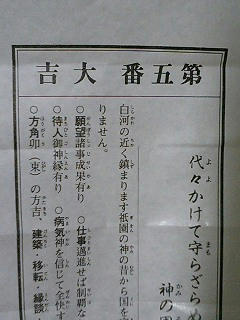 第五番 大吉
代々かけて守らざらめ
神の
白河の近く鎮まります祇園の神の昔から国を
りません。
○願望諸事成果有り ○仕事邁進せば制覇な
○待人御神縁有り ○病気神を信じて全快す
○方角卯(東)の方吉、建築・移転・縁談